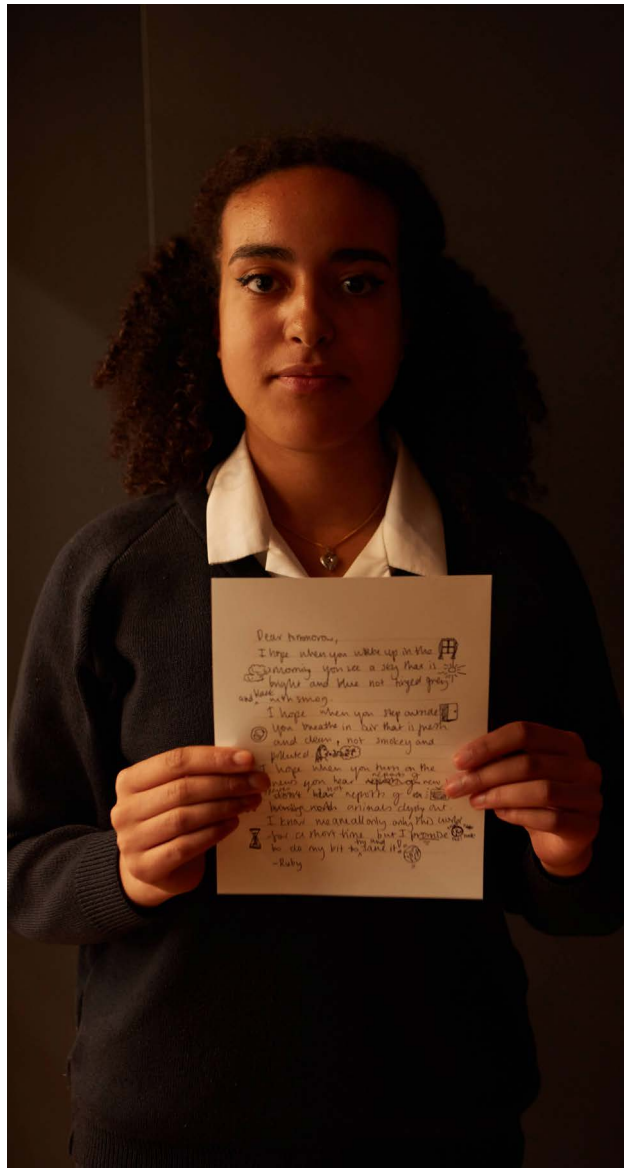 Dear tomorrow,
I hope when you wake up in the
morning you see a sky that is
bright and blue not tinged grey
and black with smog.
I hope when you step outside
you breathe in air that is fresh
and clean, not smokey and
polluted
I hope when you turn on the
news you hear reports of new
don't hear reports of
animals dying out.
I know we are all only on this
for a short time but I promise
to do my bit to try and save it!
-Ruby